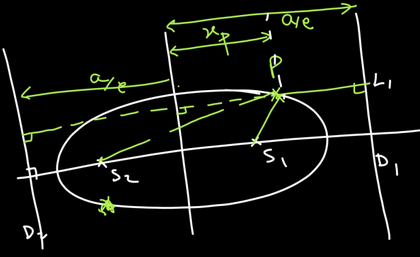 a/e
x_p
a/e
P
L₁
S₂
S₁
D₁
D₂